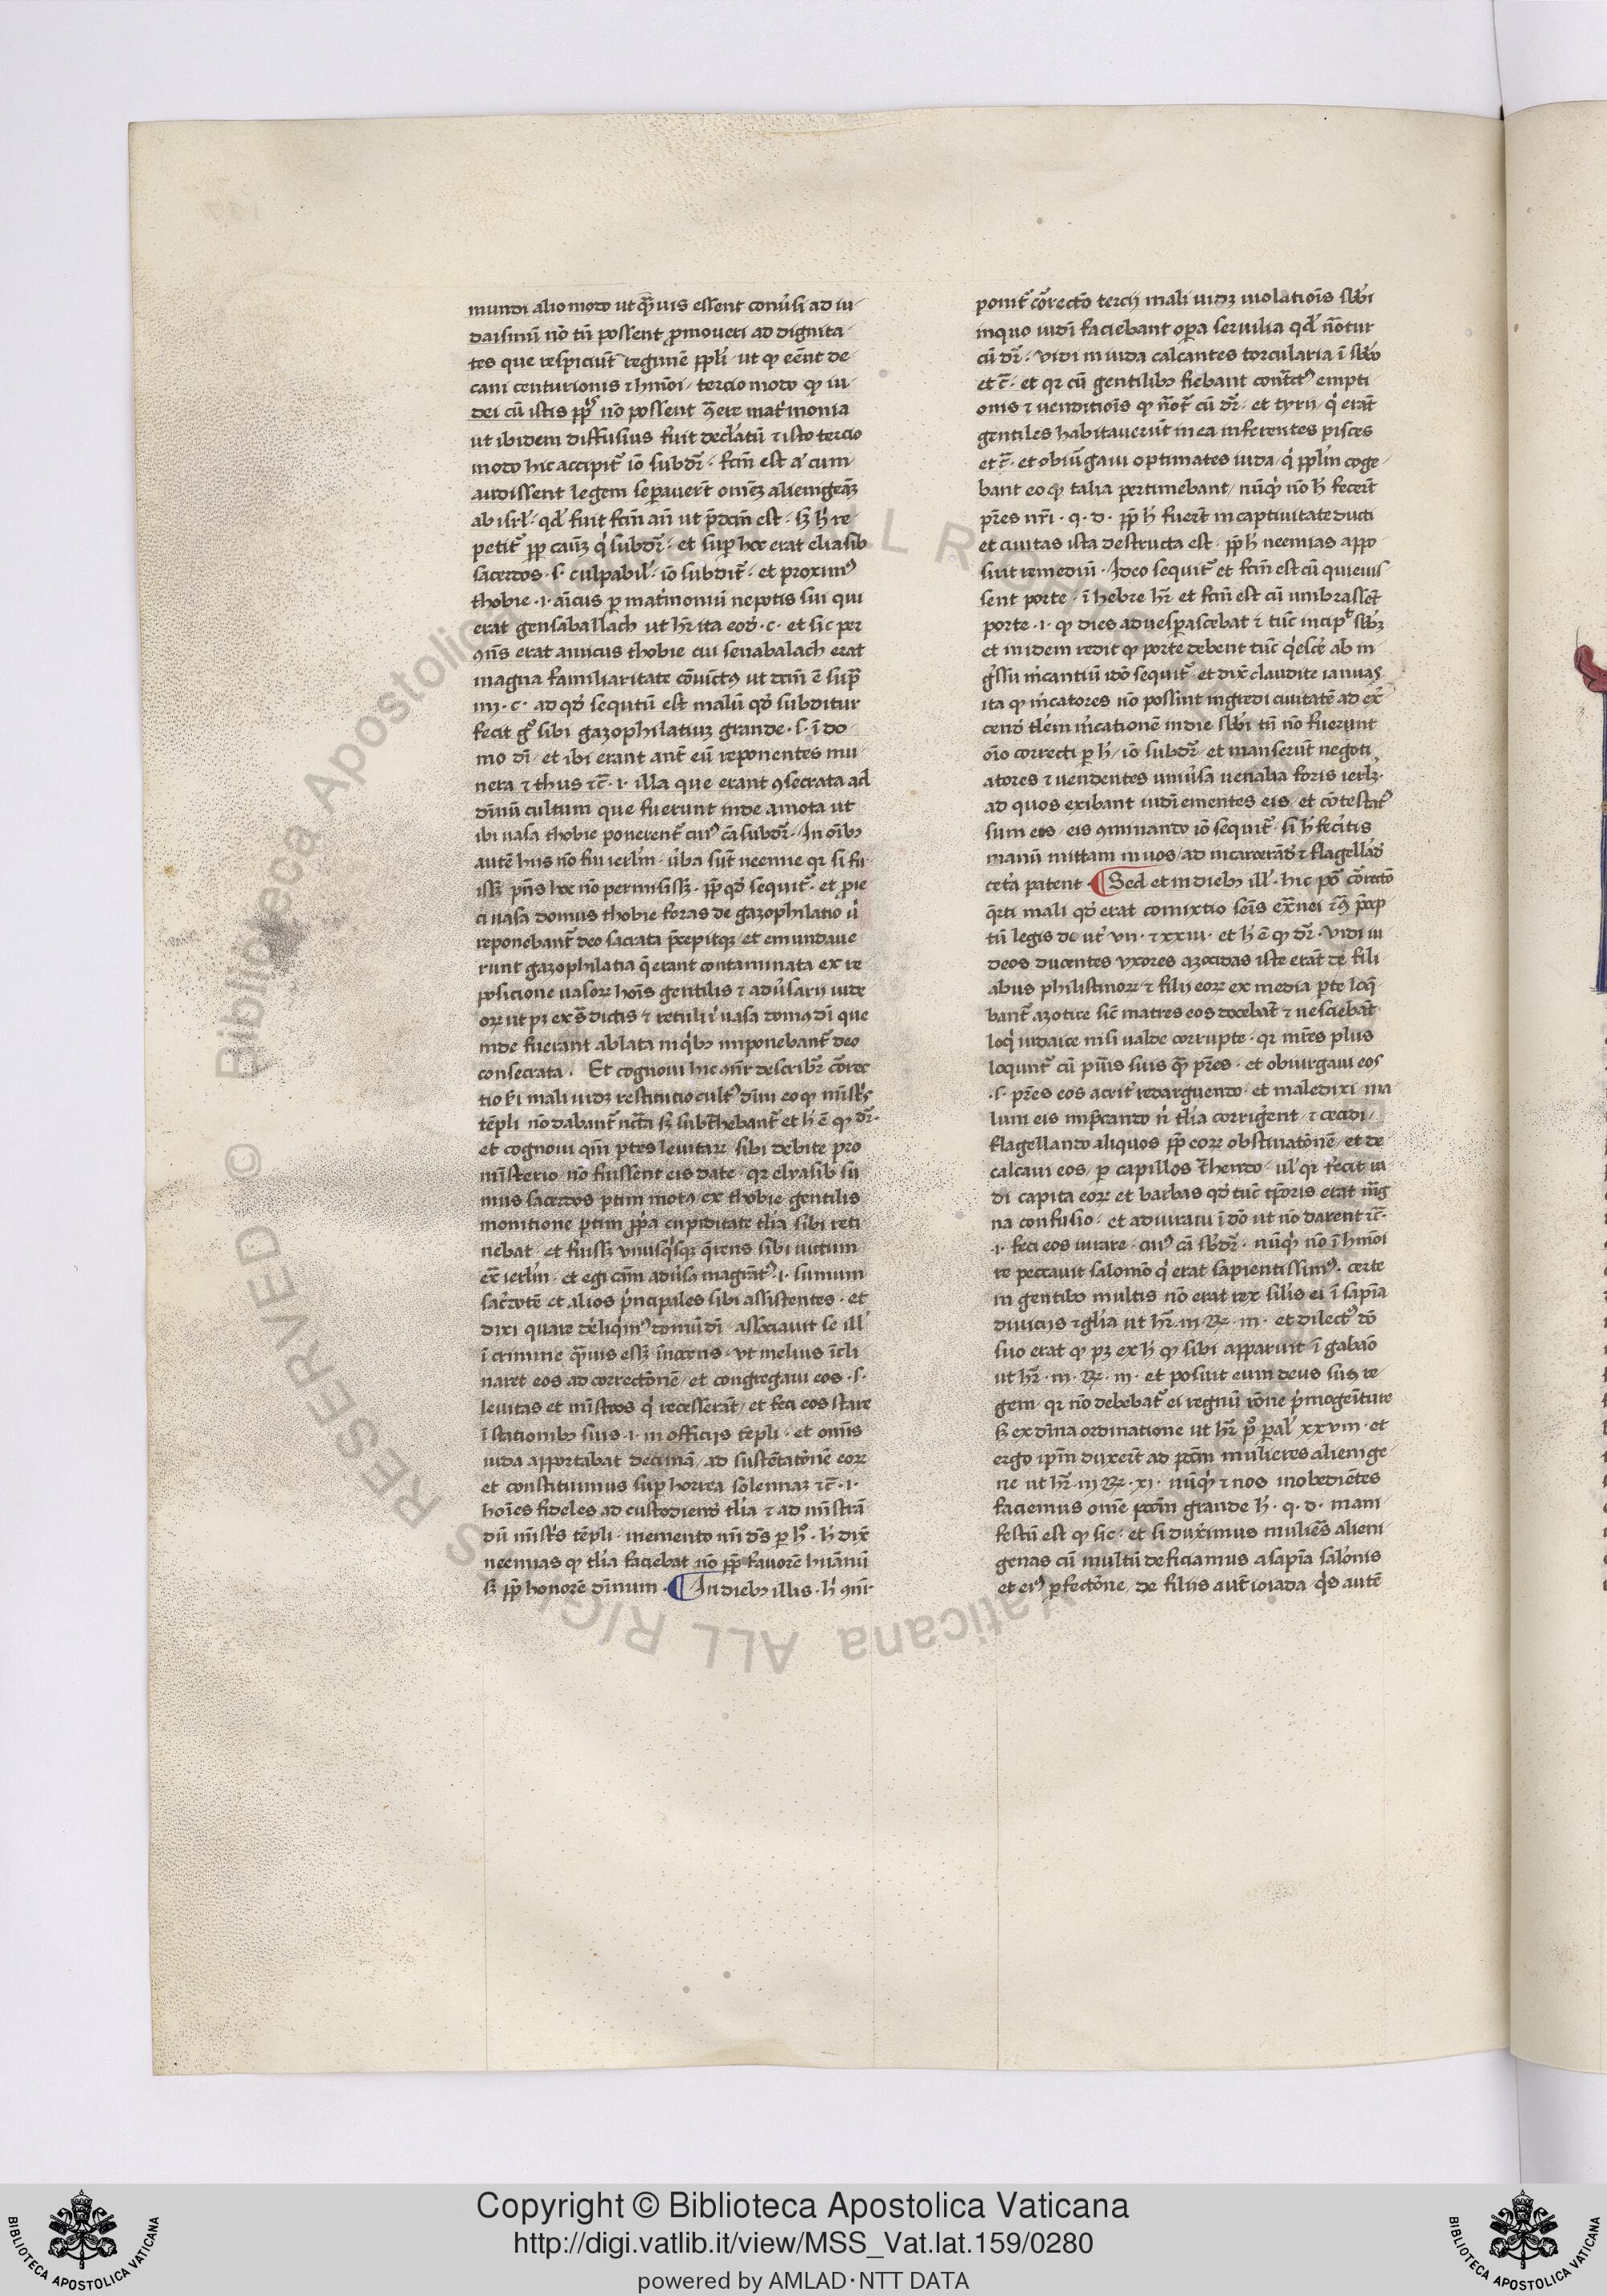 mundi alio modo ut qͣuis essent conuͥsi ad iu
daismū nō tn̄ possent ꝓmoueri ad dignita
tes que respiciūt regimē ppl̓i ut ꝙ eēnt de
cani centurionis ⁊ hm̄oi tercio modo ꝙ iu
dei cū istis nō possent matͥmonia
ut ibidem diffusius fuit decl̓atū ⁊ isto tercio
modo hic accipit᷑ iō subdr̄ · fcm̄ est cum
audissent legem sepauer̄t omēꝫ alienigeāꝫ
ab isrl̓ · qd̓ fuit fcm̄ ut p̄dcm̄ est · sꝫ h̓ re
petit᷑ ꝓp cauꝫ subdr̄ · et suꝑ hoc erat eliasib
sacerdos · s̓ · culpabil̓ · iō subdit᷑ · et proximꝰ
thobie · i · aīcus ꝑ matͥmoniū nepotis sui qui
erat gensaballach ut hr̄ ita eod̓ · c · et sic per
ꝯn̄s erat amicus thobie cui senabalach erat
magna familiaritate cōuictꝰ ut dcm̄ ē supͣ
iiii · c · ad qd̓ sequtū est malū qd̓ subditur
fecit gͦ sibi gazophilatiuꝫ grande · s̓ · ī do
mo dī et ibi erant ant̄ eū reponentes mu
nera ⁊ thus ⁊c̄ · i · illa que erant ꝯsecrata ad
dīnū cultum que fuerunt inde amota ut
ibi uasa thobie ponerent᷑ cuiꝰ cā subdr̄ · In oīb
autē hiis nō fui ierl̓m · ūba sūt neemie qr si fu
issꝫ pn̄s hoc nō permisissꝫ · ꝓp qd̓ sequit᷑ · et proie
ci uasa domus thobie foras de gazophilatio
reponebant᷑ deo sacrata p̄cepitqꝫ et emundaue
runt gazophilatia q̄ erant contaminata ex re
posicione uasoꝝ hoīs gentilis ⁊ adūsarii iude
oꝝ ut pꝫ ex sͣdictis ⁊ retuli uasa domꝰ dī que
inde fuerant ablata in qͥbꝫ imponebant᷑ deo
consecrata · Et cognoui hic ꝯn̄r describr̄ cōrec
tio mali uidꝫ restitutio cultꝰ dīni eo ꝙ
tēpli nō dabant᷑ sꝫ subt̄hebant᷑ et h̓ ē ꝙ dr̄
et cognoui qm̄ ptes leuitaꝝ sibi debite pro
mīsterio nō fuissent eis date qr elyasib sū
mus sacerdos ptim motꝰ ex thobie gentilis
monitione ptim ꝓpa cupiditate tl̓ia sibi reti
nebat et fuissꝫ unusqͥsqꝫ q̄rens sibi uictum
ex̄ ierl̓m · et egi cām adūsꝰ magrāt · i · sumum
sac̓dotē et alios pͥncipales sibi assistentes · et
dixi quare dominū dī associauit se
ī crimine qͣuis essꝫ īnocens ut melius īcli
naret eos ad correctōnē et congregaui eos · s̓ ·
leuitas et mīstros qͥ recesserāt et feci eos stare
ī stationibꝫ suis · i · in officiis tēpli · et omīs
iuda apportabat decimā ad sustētatōnē eoꝝ
et constituimus suꝑ horrea solennaꝫ ⁊c̄ · i ·
hoīes fideles ad custodiend̓ tl̓ia ⁊ ad mīstrā
dū mīstr̓s tēpli · memento mī dn̄s ꝑ hͦ · h̓ dix̄
neemias ꝙ tl̓ia faciebat nō ꝓp fauorē huānū
sꝫ ꝓp honorē dīnum · ¶ In diebꝫ illis · h̓ ꝯn̄r
ponit᷑ cōrectō tercii mali uidꝫ uiolatiōis sbbi
in quo iudī faciebant oꝑa seruilia qd̓ nōtur
cū dr̄ · uidi in iuda calcantes torcularia ī sbbo
et c̄ · et qr cū gentilibꝫ fiebant empti
onis ⁊ uenditiōis ꝙ nōt᷑ cū dr̄ · et tyrii qͥ erāt
gentiles habitauerūt in ea inferentes pisces
et c̄ · et obiūgaui optimates iuda qͥ ppl̓m coge
bant eo ꝙ talia pertinebant nūqͥ nō h̓ fecer̄t
pr̄es nr̄i · q · d · ꝓp h̓ fuer̄t in captiuitate ducti
et ciuitas ista destructa est · ꝓp h̓ neemias appo
suit remediū · Ideo sequit᷑ et fcm̄ est cū quieuis
sent porte · ī hebre hr̄ et fcm̄ est cū umbrassēt
porte · i · ꝙ dies aduesꝑascebat ⁊ tūc incip̄t sbbꝫ
et in idem redit ꝙ porte debent tūc qͥesce̓ ab in
gͥssu mͥcantiū idō sequit᷑ et dix̄ claudite ianuas
ita ꝙ mͥcatores nō possint ingredi ciuitatē ad ex̓
cend̓ tl̓em mͥcationē in die sbbi tn̄ nō fuerunt
oīo correcti ꝑ h̓ iō subdr̄ et manserūt negoti
atores ⁊ uendentes uniūsa uenalia foris ierlꝫ
ad quos exibant iudī ementes eis et cōtestatꝰ
sum eos eis ꝯminando iō sequit᷑ · si h̓ fec̓itis
manū mittam in uos ad incarcerād̓ ⁊ flagellād̓
cet̓a patent · ¶ Sed et in diebꝫ ill̓ · hic pōit cōrectō
qͣrti mali qd̓ erat comixtio seīs
tū legis deut̓ vii · ⁊ xxiii · et h̓ ē ꝙ dr̄ · uidi iu
deos ducentes uxores azotidas iste erāt de fili
abus philistinoꝝ ⁊ filii eoꝝ ex media ꝑte loq̄
bant᷑ azotice sic̄ matres eos docebāt ⁊ nesciebāt
loqͥ iudaice nisi ualde corrupte · qr mr̄es plus
loqunt᷑ cū puīs suis qͣ pr̄es · et obiurgaui eos
· s̓ · pr̄es eos acrit̓ redarguendo · et maledixi ma
lum eis imp̄cando nͥ tl̓ia corrigēt ⁊ cecidi
flagellando aliquos ꝓp eoꝝ obstinatōnē et de
calcaui eos ꝑ capillos t̄hendo · ul̓ qr fecit ra
di capita eoꝝ et barbas qd̓ tūc tꝑoris erat mͣg
na confusio · et adiuraui ī dō ut nō darent ⁊c̄ ·
· i · feci eos iurare · cuiꝰ cā sbdr̄ · nūqͥ nō ī hm̄oi
re peccauit salomō qͥ erat sapientissimꝰ · certe
in gentibꝫ multis nō erat rex silis ei ī sapīa
diuiciis ⁊ gl̓ia ut hr̄ · iii · Rͫ · iii · et dilectꝰ dō
suo erat ꝙ pꝫ ex h̓ ꝙ sibi apparuit ī gabaō
ut hr̄ · iii · Rͫ · iii · et posuit eum deus suꝑ re
gem · qr nō debebat᷑ ei regnū rōne pͥmogeīture
sꝫ ex dīna ordinatione ut hr̄ pͦ pal̓ xxviii · et
ergo ip̄m duxer̄t ad pccm̄ mulieres alienige
ne ut hr̄ · iii Rͫ · xi · nūqͥ ⁊ nos inobediētes
faciemus omē pccm̄ grande h̓ · q · d · mani
festū est ꝙ sic · et si duxīmus muliēs alieni
genas cū multū deficiamus a sapīa salōnis
et eiꝰ ꝑfectōne de filiis aut̄ ioiada qͥs autē
Copyright © Biblioteca Apostolica Vaticana
http://digi.vatlib.it/view/MSS_Vat.lat.159/0280
powered by AMLAD·NTT DATA